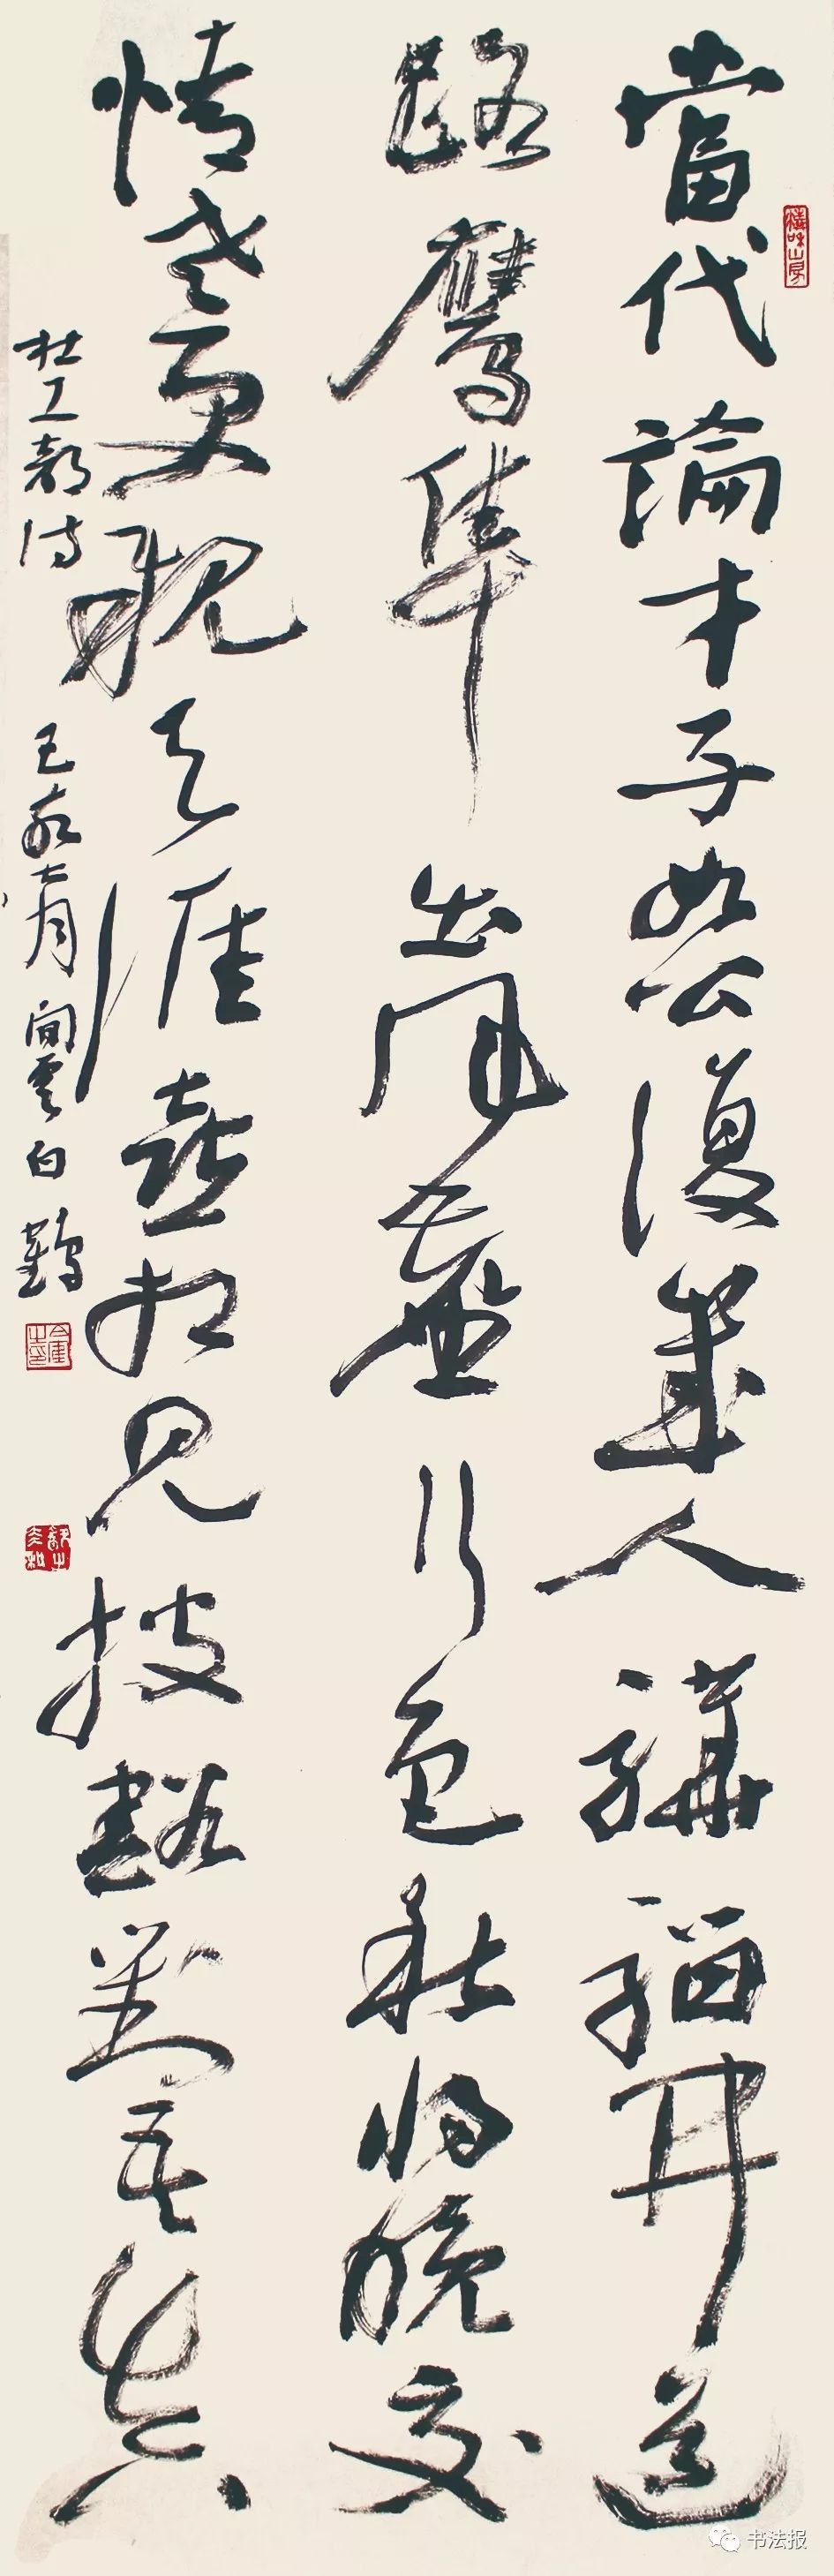 當代論才子如公復幾人驊騮開道
路鷹隼出風塵行色秋將晚交
情老更親天涯喜相見披豁對吾真
杜工部詩 己亥七月 閒雲白鶴
书法报